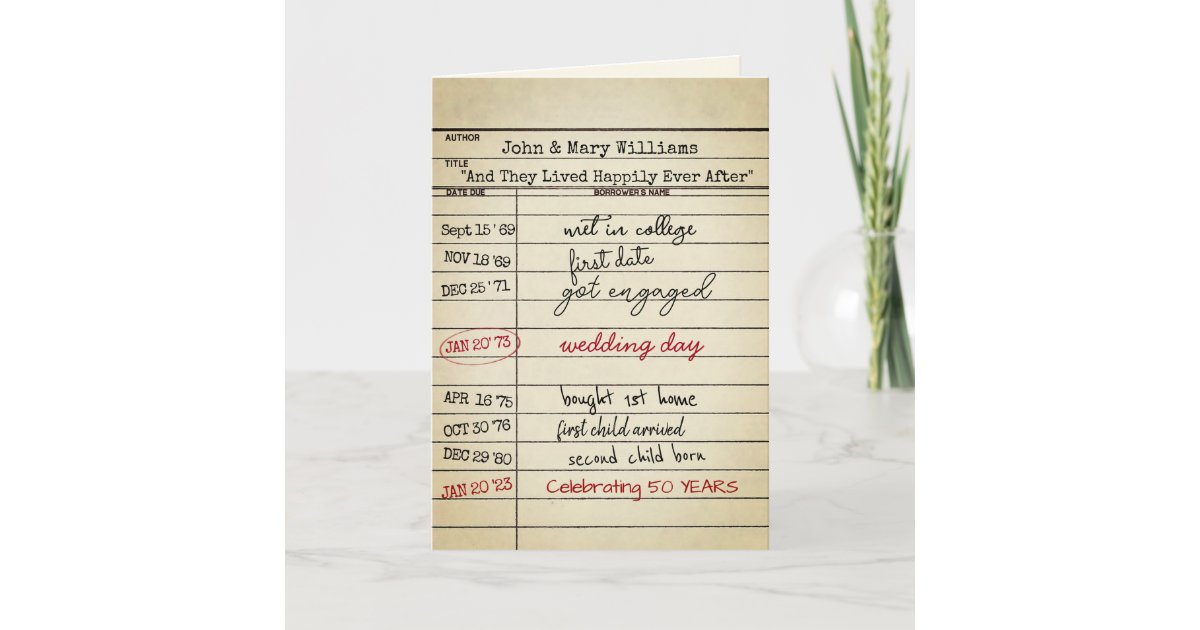 AUTHOR
John & Mary Williams
TITLE
"And They Lived Happily Ever After"
DATE DUE BORROWER'S NAME
Sept 15 '69 met in college
NOV 18 '69 first date
DEC 25 '71 got engaged
JAN 20' 73 wedding day
APR 16 '75 bought 1st home
OCT 30 '76 first child arrived
DEC 29 '80 second child born
JAN 20 '23 Celebrating 50 YEARS